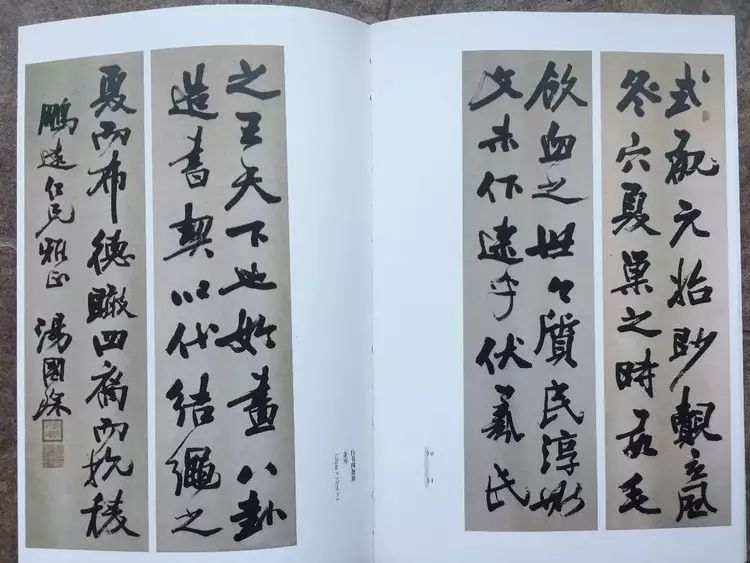 式觀元始眇覿玄風
冬穴夏巢之時茹毛
飲血之世々質民淳斯
文未作逮乎伏羲氏
之王天下也始畫八卦
造書契以代結繩之
夏而布德瞰四裔而抗稜
鵬遠仁兄雅正 湯國琛
行书四条屏
30
31